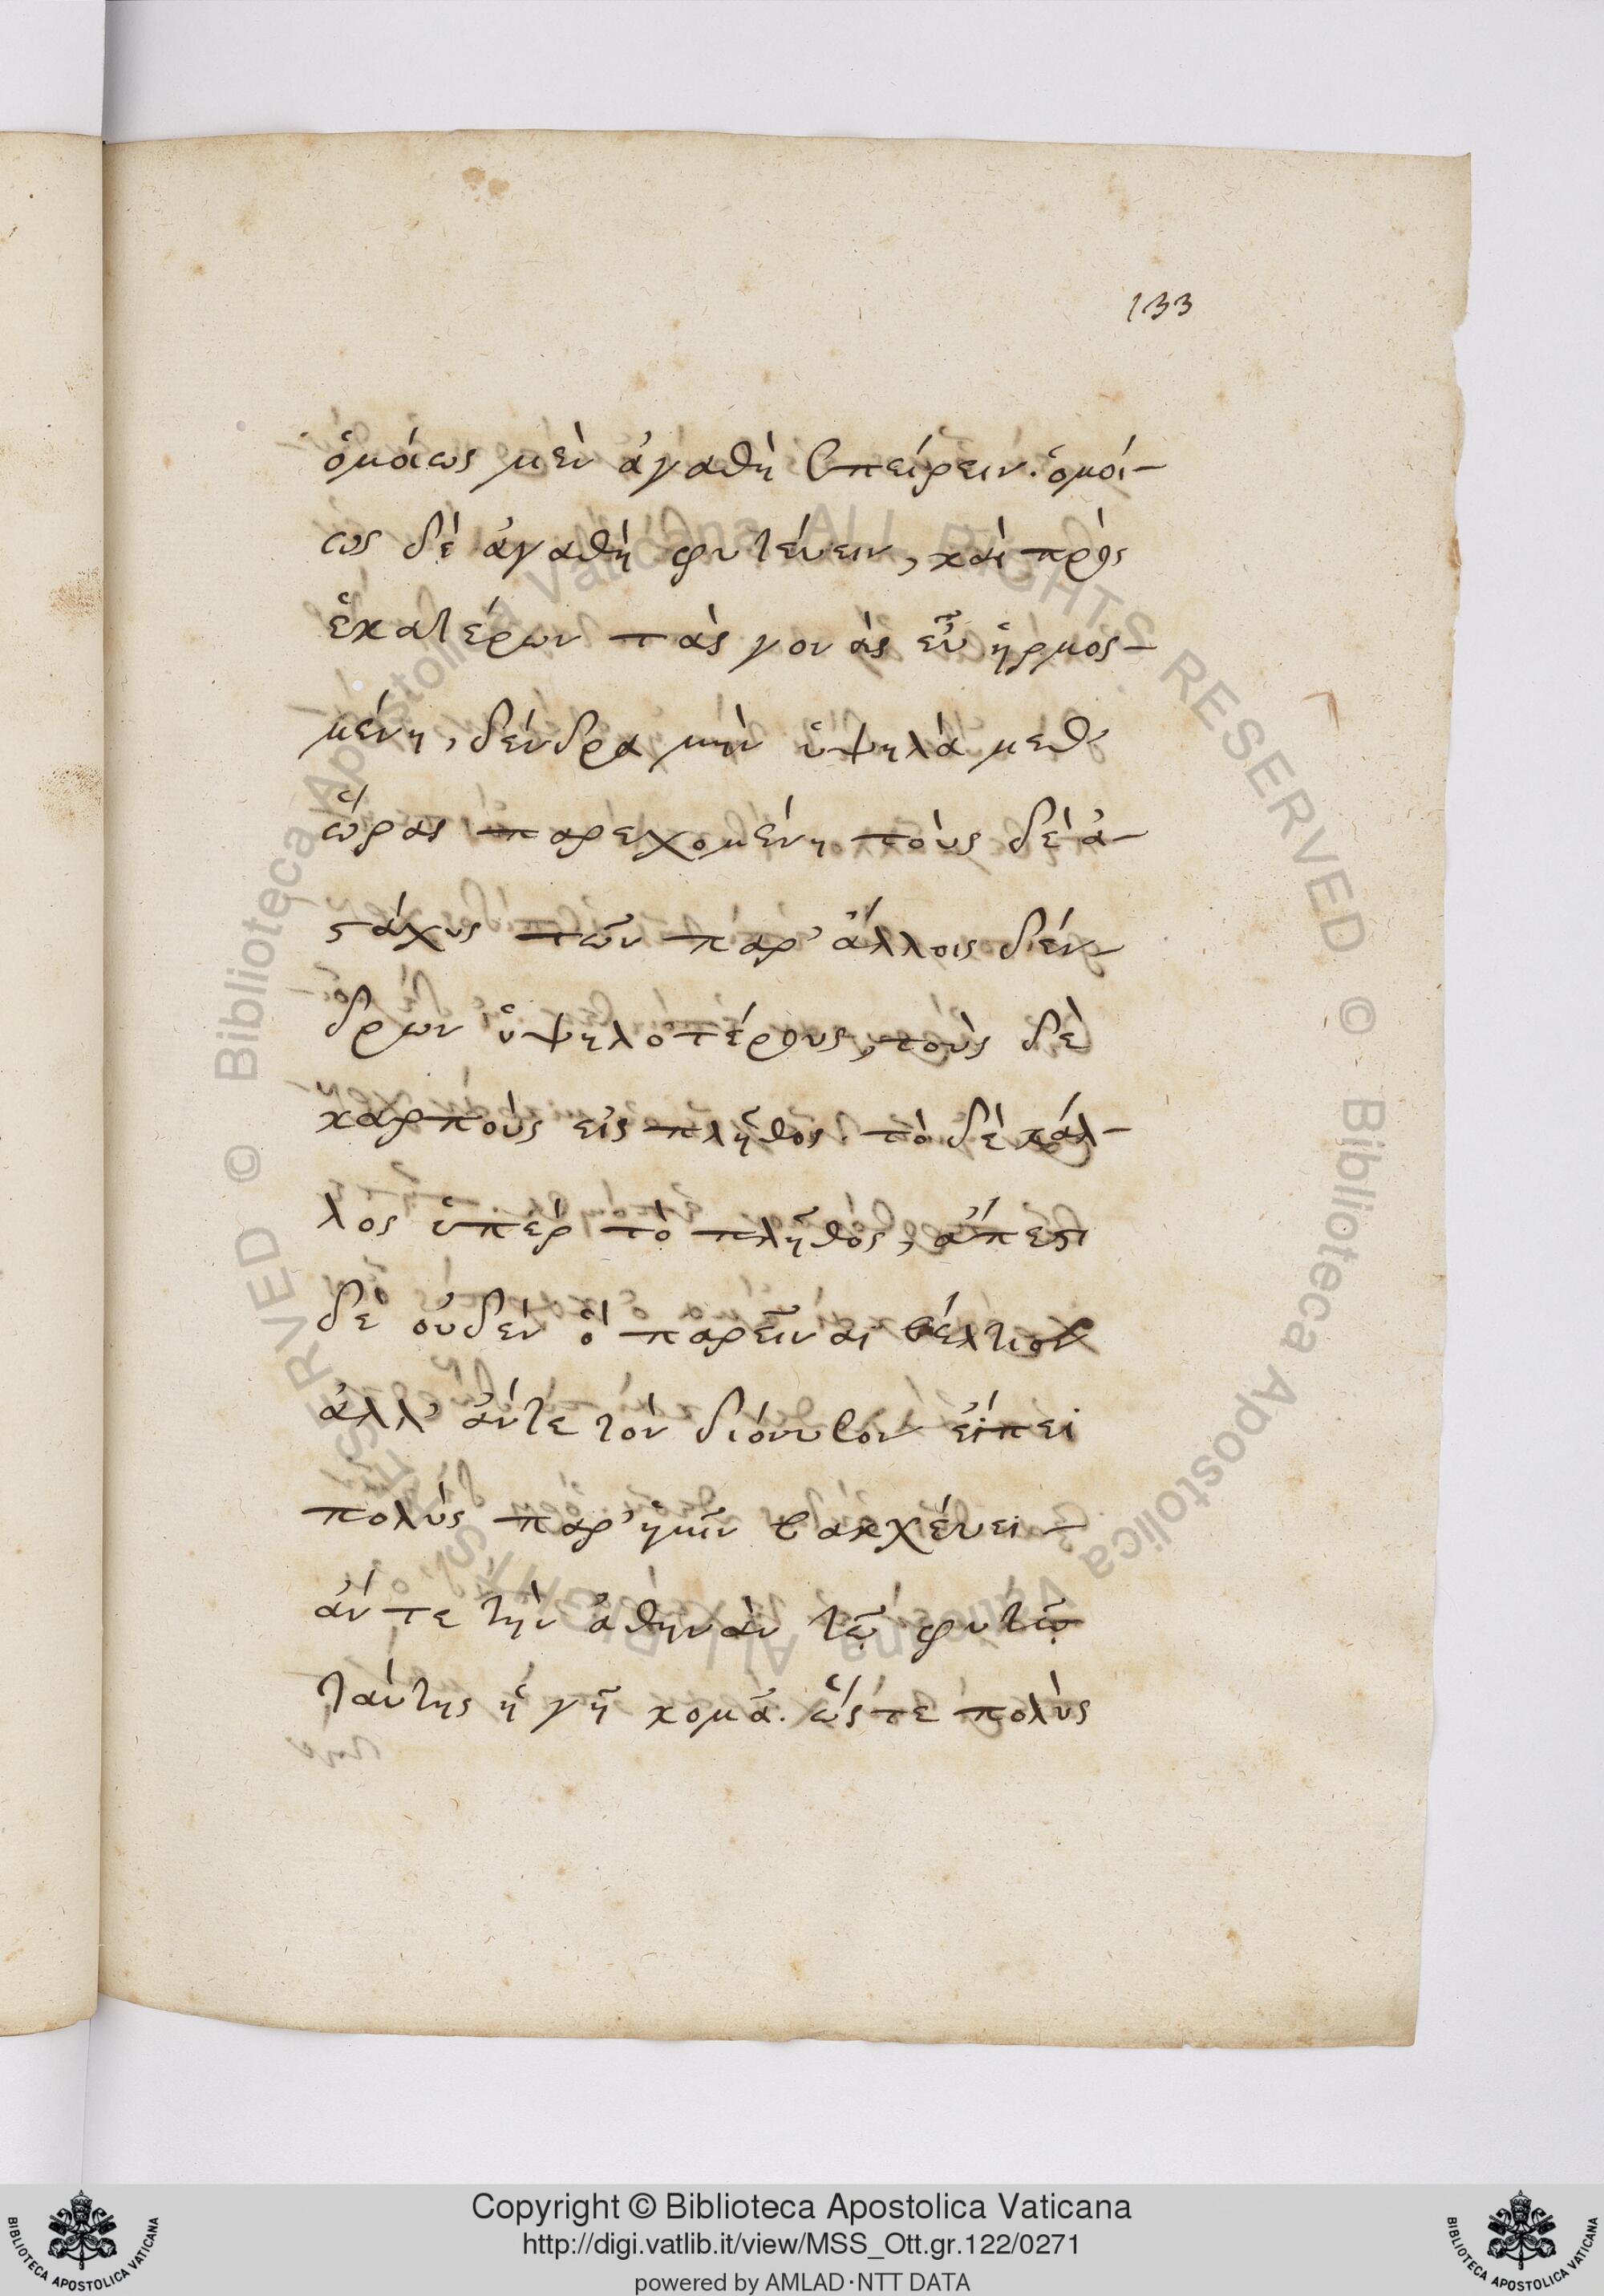 133
ὁμοίως μὲν ἀγαθὴ σπείρειν. ὁμοί-
ως δὲ ἀγαθὴ φυτεύειν, καὶ πρὸς
ἑκατέρων τὰς γονὰς εὖ ἡρμοσ-
μένη, δένδρα μὴν ὑψηλὰ μεθ'
ὥρας παρεχομένη τοὺς δὲ ἀ-
στάχυς τῶν παρ' ἄλλοις δέν-
δρων ὑψηλοτέρους, τοὺς δὲ
καρποὺς εἰς πλῆθος. τὸ δὲ κάλ-
λος ὑπὲρ τὸ πλῆθος, ἄπεστι
δὲ οὐδὲν ὃ παρεῖναι βέλτιον
ἀλλ' ἄντε τὸν διόνυσον εἴπει
πολὺς παρ' ἡμῖν βακχεύει -
ἄν τε τὴν ἀθηνὰν τῷ φυτῷ
ταύτης ἡ γῆ κομᾷ. ὥστε πολὺς
Copyright © Biblioteca Apostolica Vaticana
http://digi.vatlib.it/view/MSS_Ott.gr.122/0271
powered by AMLAD·NTT DATA
BIBLIOTECA APOSTOLICA VATICANA
BIBLIOTECA APOSTOLICA VATICANA
© Biblioteca Apostolica Vaticana ALL RIGHTS RESERVED
© Biblioteca Apostolica Vaticana ALL RIGHTS RESERVED